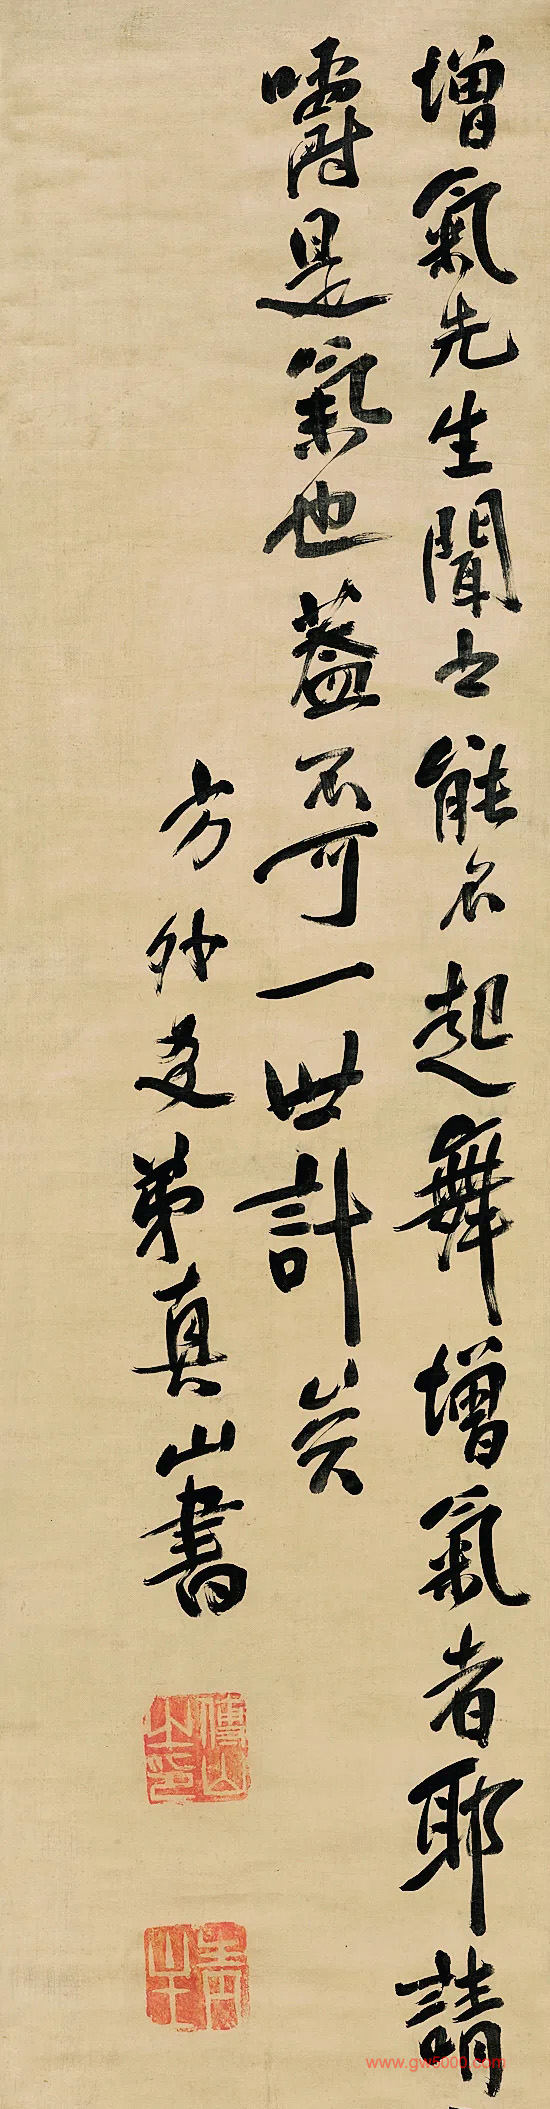 增氣先生聞之能不起舞增氣者耶請
嚼是氣也蓋不可一世計矣
方外友弟真山書
傅山之印
www.gw5000.com